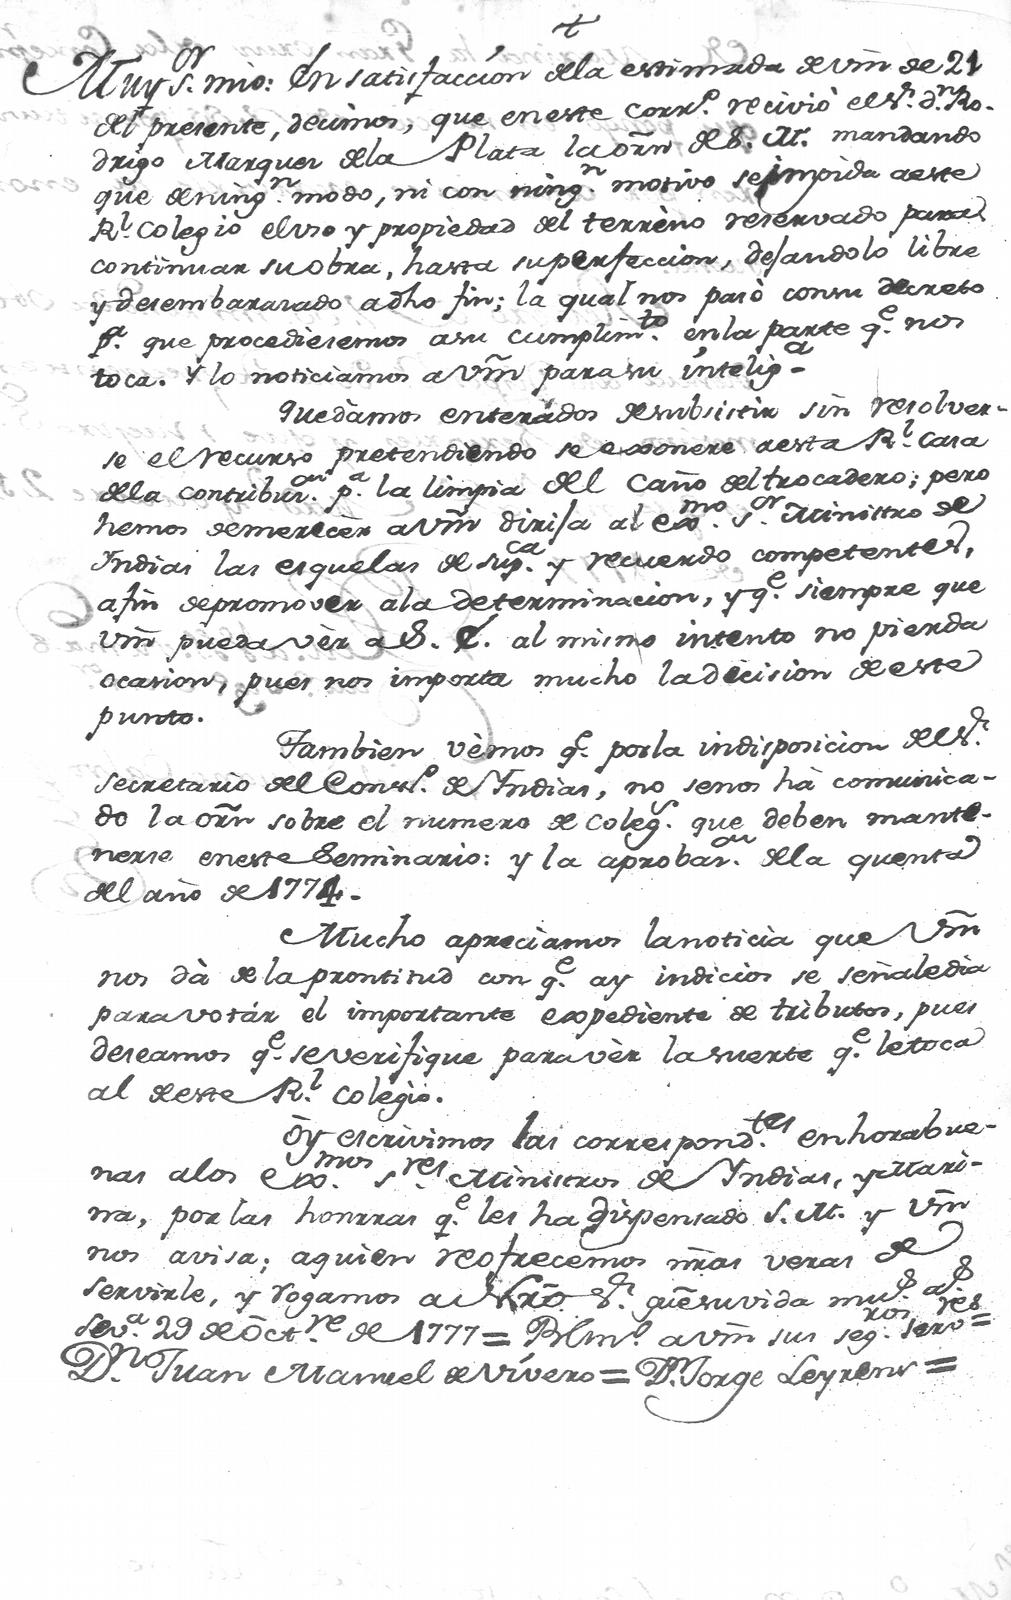 +
Muy Sor. mio: En satisfacción dela estimada de Vm̃ de 21
del presente, decimos, que eneste corro. recivió elSr. dn. Ro-
drigo Marquez dela Plata la orñ de S. M. mandando
que deningn. modo, ni con ningn. motivo se impida aeste
Rl. Colegio eluso y propiedad del terreno reservado para
continuar suobra, hasta superfeccion, dejandolo libre
y desembarazado adho fin; la qual nos pasò consu decreto
pa. que procediesemos asu cumplimto. enla parte qe. nos
toca. Y lo noticiamos a Vm̃ para su inteliga-
Quedamos enterados desubsistir sin resolver-
se el recurso pretendiendo se exonere aesta Rl. Casa
dela contribuon. pa. la limpia del Caño deltrocadero; pero
hemos demerecèr a Vm̃ dirija al exmo. Sor. Ministro de
Indias las esquelas de supca. y recuerdo competentes,
afin depromover ala determinacion, y qe. siempre que
Vm̃ pueda vèr a S. E. al mismo intento no pierda
ocasion, pues nos importa mucho ladecision de este
punto.
Tambien vèmos qe. porla indisposicion delSr.
secretario del Consejo. de Indias, no senos hà comunica-
do la orñ sobre el numero de Colegs. que deben mante-
nerse eneste Seminario: y la aprobaon. dela quenta
del año de 1774.-
Mucho apreciamos lanoticia que Vm̃
nos dà de la prontitud con qe. ay indicios se señaledia
paravotár el importante expediente de tributos, pues
deseamos qe. severifique paravèr lasuerte qe. letoca
al deeste Rl. Colegio.
Oy escrivimos las correspondtes. enhorabue-
nas alos exmos. Sres. Ministros de Indias, y Mari-
na, porlas honrras qe. les ha dispensado S. M. y Vm̃
nos avisa; aquien reofrecemos nr̃as veras de
servirle, y rogamos a Nrõ Sr. gũe suvida ms. as.
Seva. 29 de Octre. de 1777= BLmo. a Vm̃ sus segros. servres=
Dno. Juan Manuel de Vivero= Dn. Jorge Leyrens=